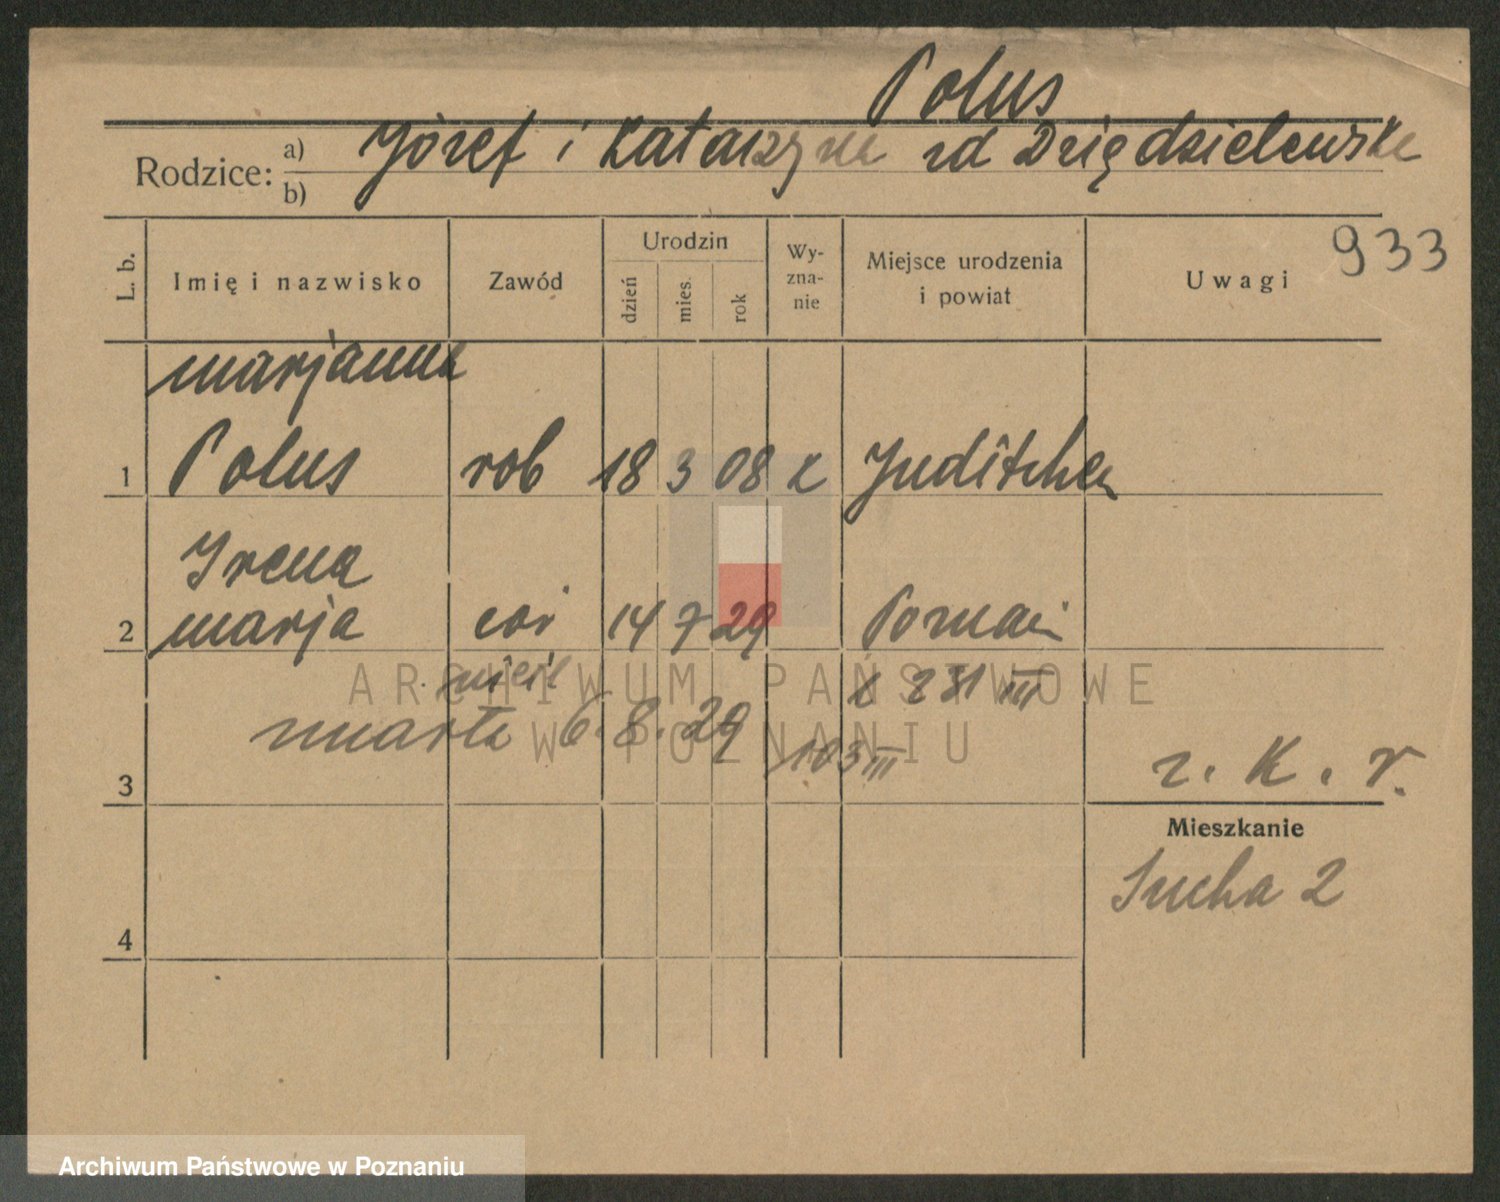 Polus
Rodzice: a) Józef i Katarzyna
b)
933
L. b.
Imię i nazwisko
Zawód
Urodzin
dzień
mies.
rok
Wy-
zna-
nie
Miejsce urodzenia
i powiat
Uwagi
marjanna
1 Polus rob 18 3 08 k Juditchen
Irena
2 marja cór 14 7 29 Poznań
nieśl k 231 III
umarła 6.8.29
103 III
r. K. r.
3
Mieszkanie
Sucha 2
4
ARCHIWUM PAŃSTWOWE
W POZNANIU
Archiwum Państwowe w Poznaniu